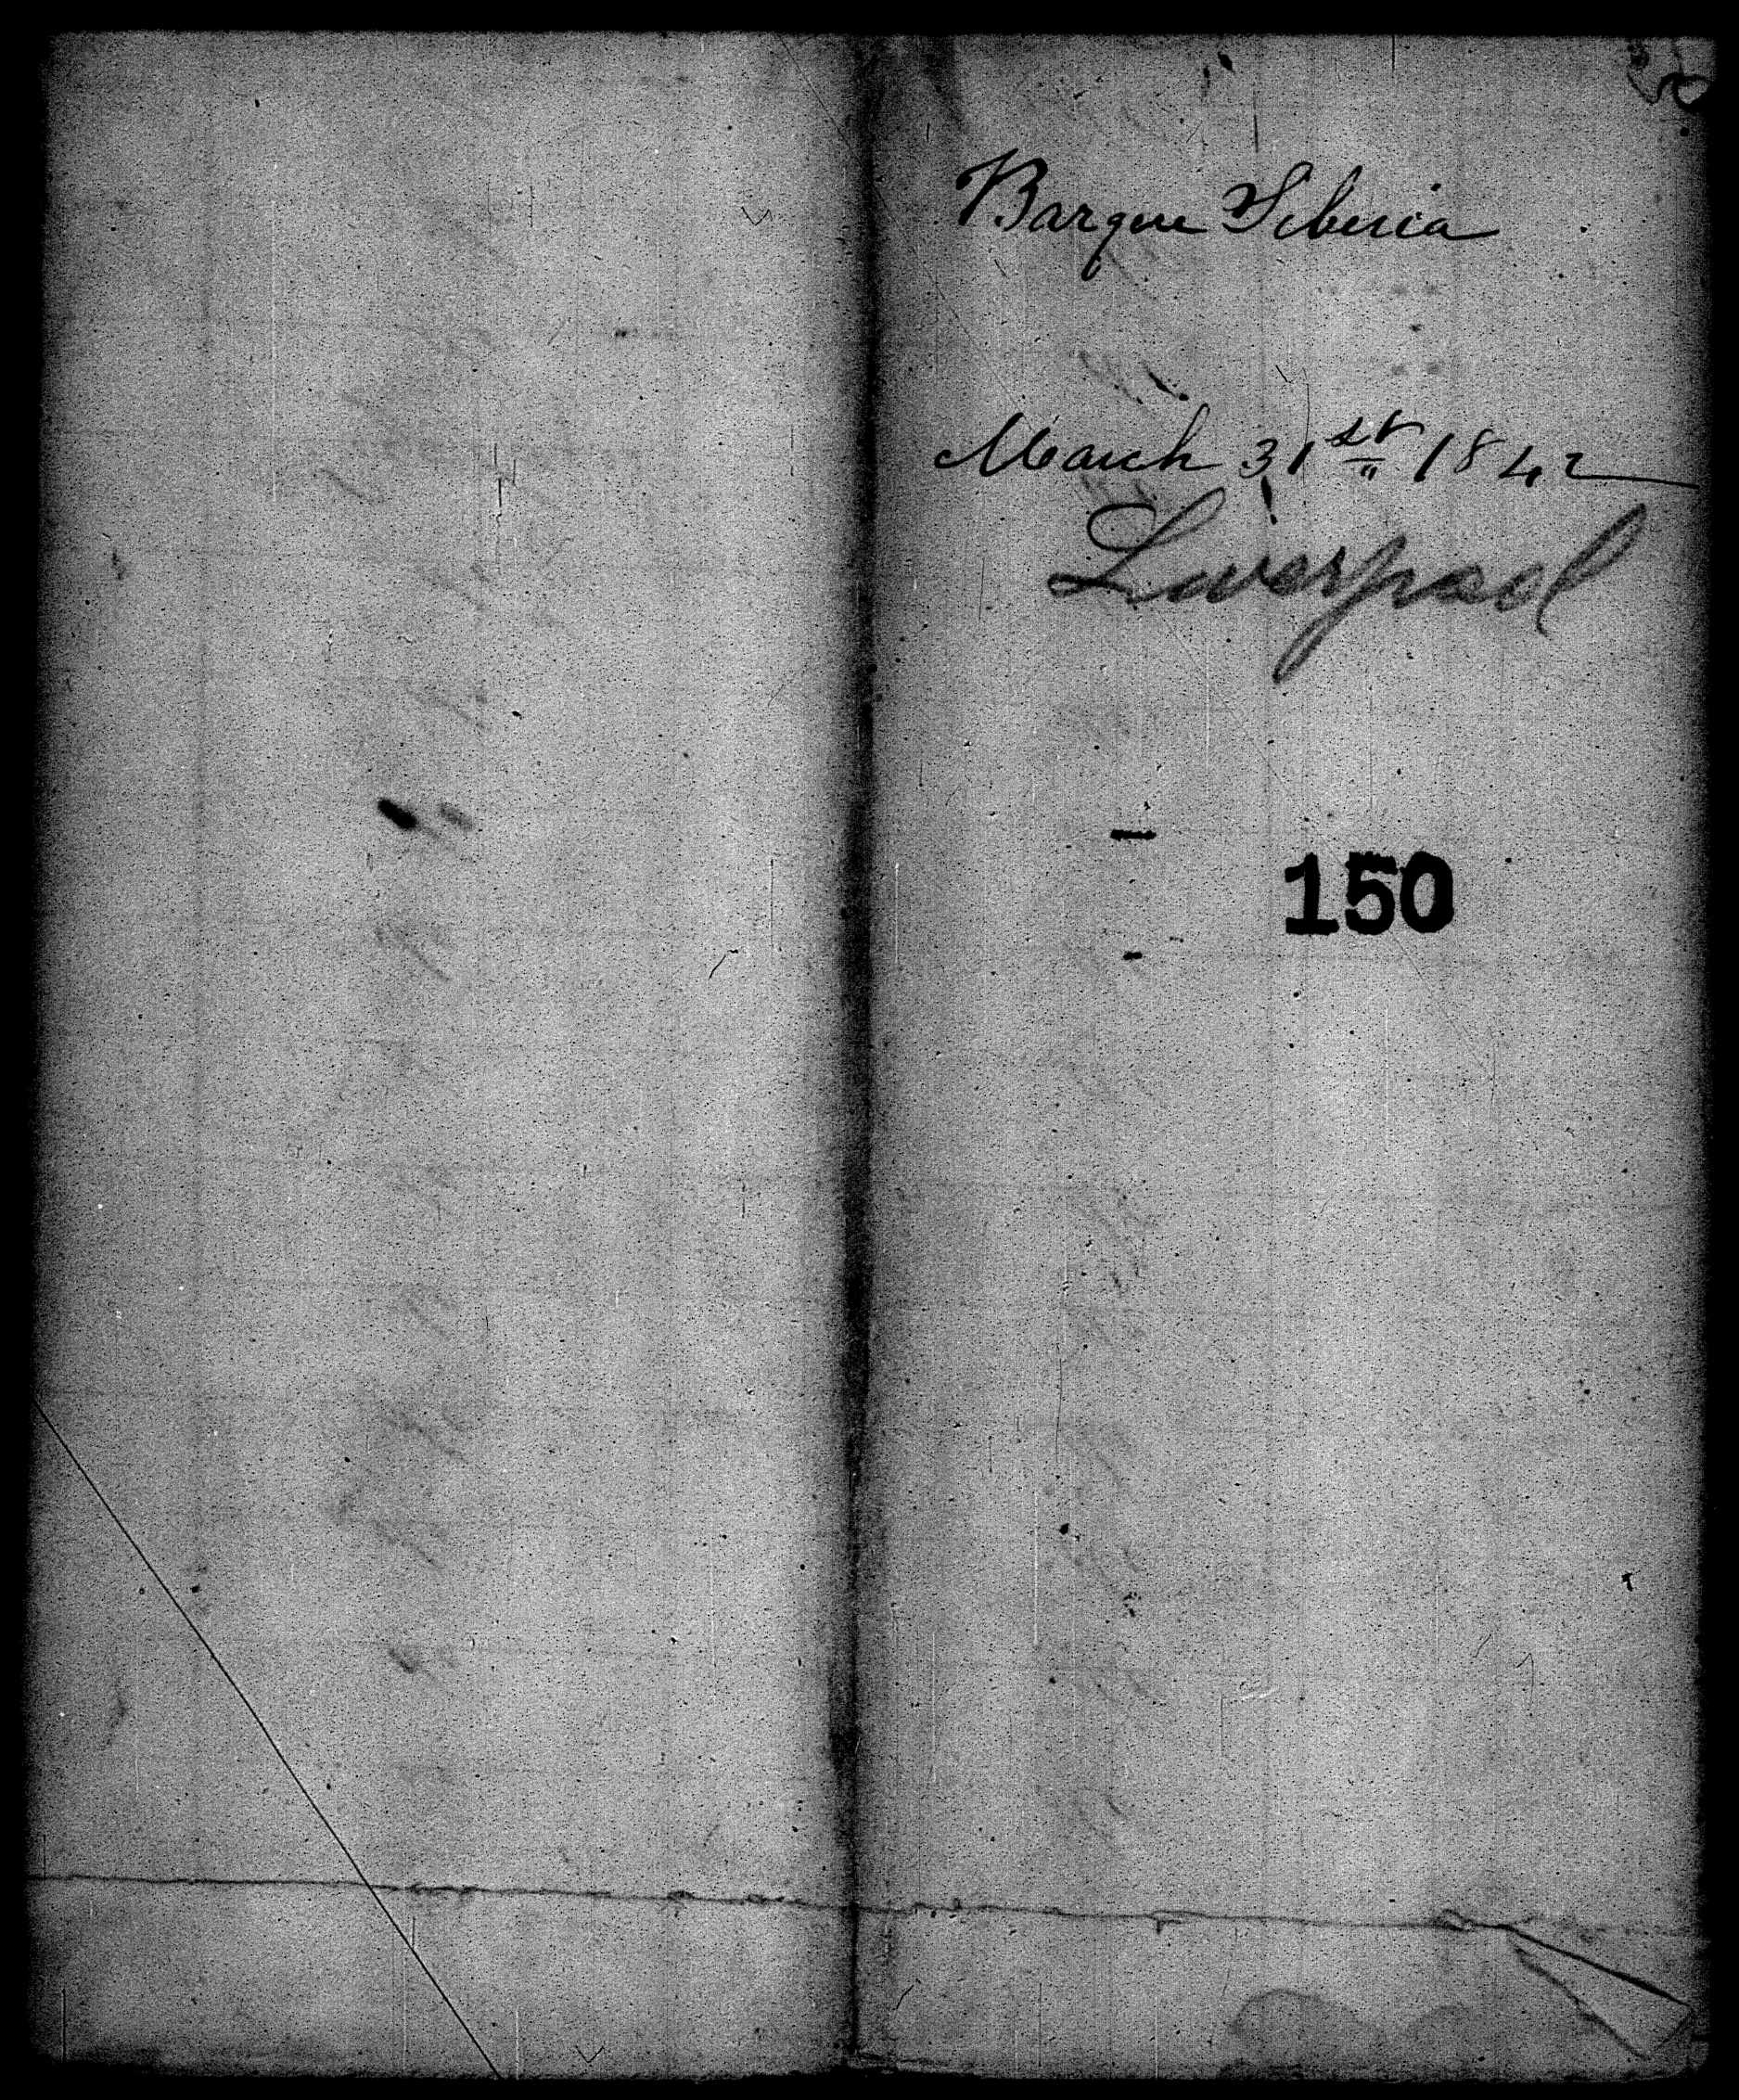 Barque Siberia
March 31st 1842
Liverpool
150